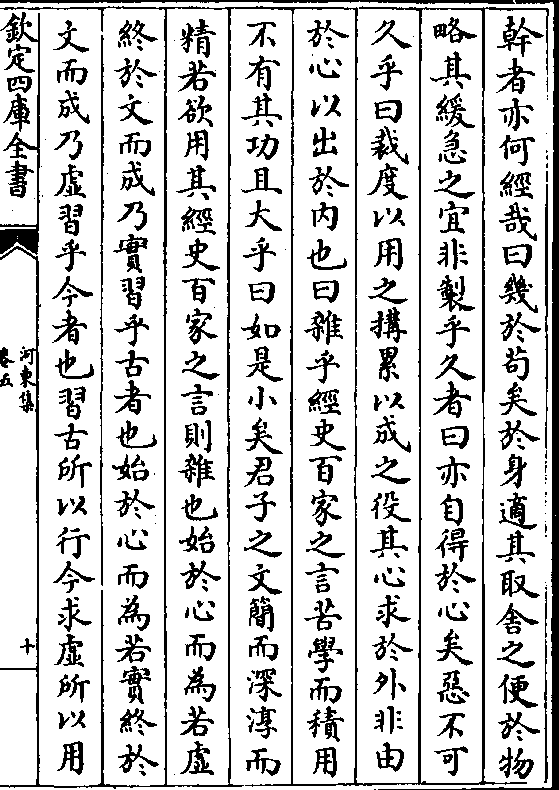 幹者亦何經哉曰幾於苟矣於身適其取舍之便於物
略其緩急之宜非製乎久者曰亦自得於心矣惡不可
久乎曰裁度以用之搆累以成之役其心求於外非由
於心以出於内也曰雜乎經史百家之言苦學而積用
不有其功且大乎曰如是小矣君子之文簡而深淳而
精若欲用其經史百家之言則雜也始於心而為若虛
終於文而成乃實習乎古者也始於心而為若實終於
文而成乃虛習乎今者也習古所以行今求虛所以用
欽定四庫全書
河東集
卷五
十